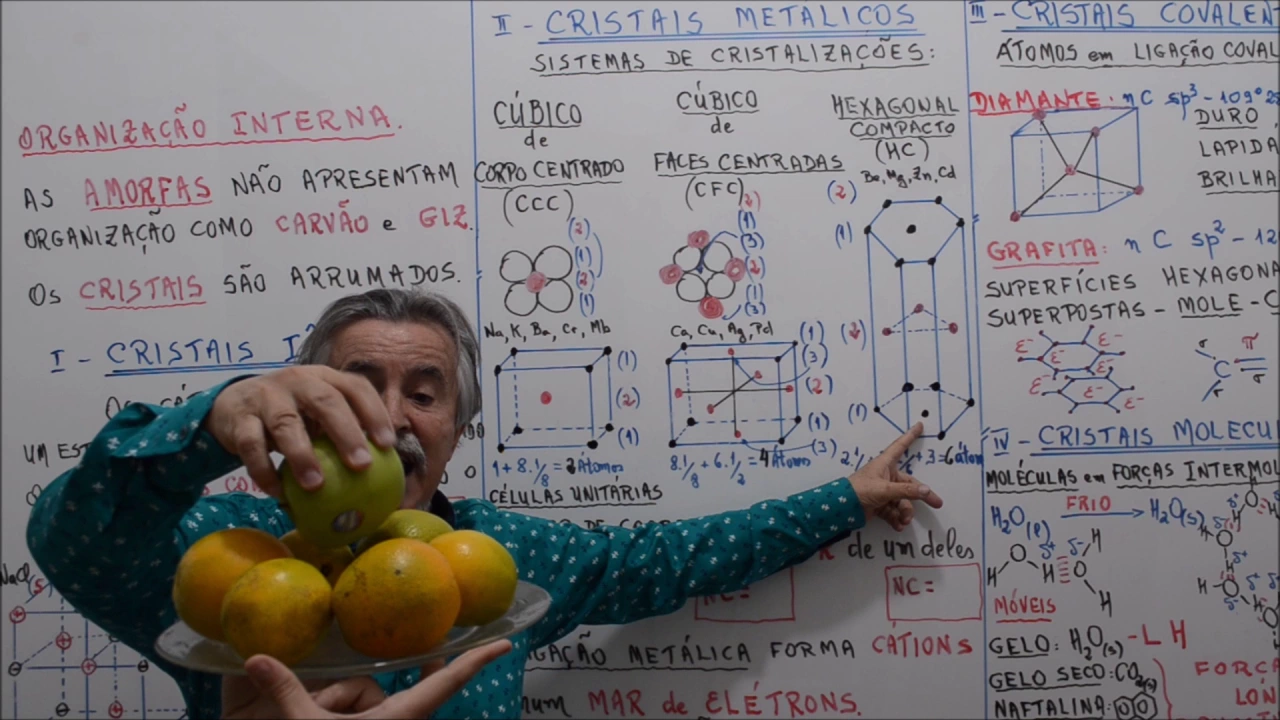 ORGANIZAÇÃO INTERNA.
AS AMORFAS NÃO APRESENTAM
ORGANIZAÇÃO COMO CARVÃO e GIZ.
OS CRISTAIS SÃO ARRUMADOS.
I - CRISTAIS
UM
NaCl(s)
II - CRISTAIS METALICOS
SISTEMAS DE CRISTALIZAÇÕES:
CÚBICO
de
CORPO CENTRADO
(CCC)
(2)
(1)
(2)
(1)
Na, K, Ba, Cr, Mb
(1)
(2)
(1)
1 + 8.1/8 = 2 Átomos
CÉLULAS UNITÁRIAS
CÚBICO
de
FACES CENTRADAS
(CFC)
(2)
(1)
(3)
(2)
(1)
(3)
Ca, Cu, Ag, Pd
(1)
(3)
(2)
(1)
(3)
8.1/8 + 6.1/2 = 4 Átomos
HEXAGONAL
COMPACTO
(HC)
Be, Mg, Zn, Cd
(2)
(1)
(2)
(1)
+ 3 = 6 átom
de um deles
NC =
NC =
LIGAÇÃO METÁLICA FORMA CÁTIONS
num MAR de ELÉTRONS.
III - CRISTAIS COVALEN
ÁTOMOS em LIGAÇÃO COVAL
DIAMANTE: n C sp³ - 109° 2
DURO
LAPIDA
BRILHA
GRAFITA: n C sp² - 12
SUPERFÍCIES HEXAGONA
SUPERPOSTAS - MOLE - C
E⁻ E⁻
E⁻ E⁻
E⁻ E⁻
σ π
C
σ σ
IV - CRISTAIS MOLECU
MOLÉCULAS em FORÇAS INTERMOL
H₂O(l) FRIO H₂O(s)
H O H O H H
MÓVEIS
GELO: H₂O(s) - L H
GELO SECO: CO₂(s)
NAFTALINA:
FORÇA
LON